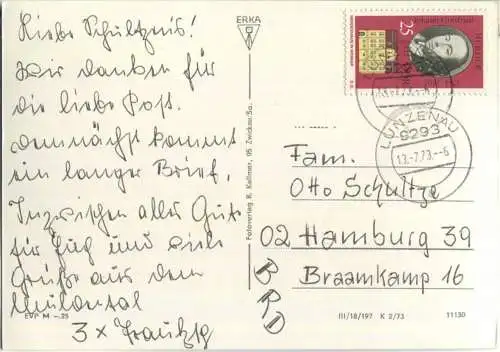 Liebe Schultzeīs!
Wir danken für
die liebe Post.
Demnächst kommt
ein langer Brief.
Inzwischen alles Gute
für Jug und viele
Grüße aus dem
Muldental
3 x
EVP M -.25
ERKA
Fotoverlag R. Kallmer, 95 Zwickau/Sa.
25
DDR
LUNZENAU
9293
13.-7.73.--6
Fam.
Otto Schultze
02 Hamburg 39
Braamkamp 16
BRD
III/18/197 K 2/73 11130